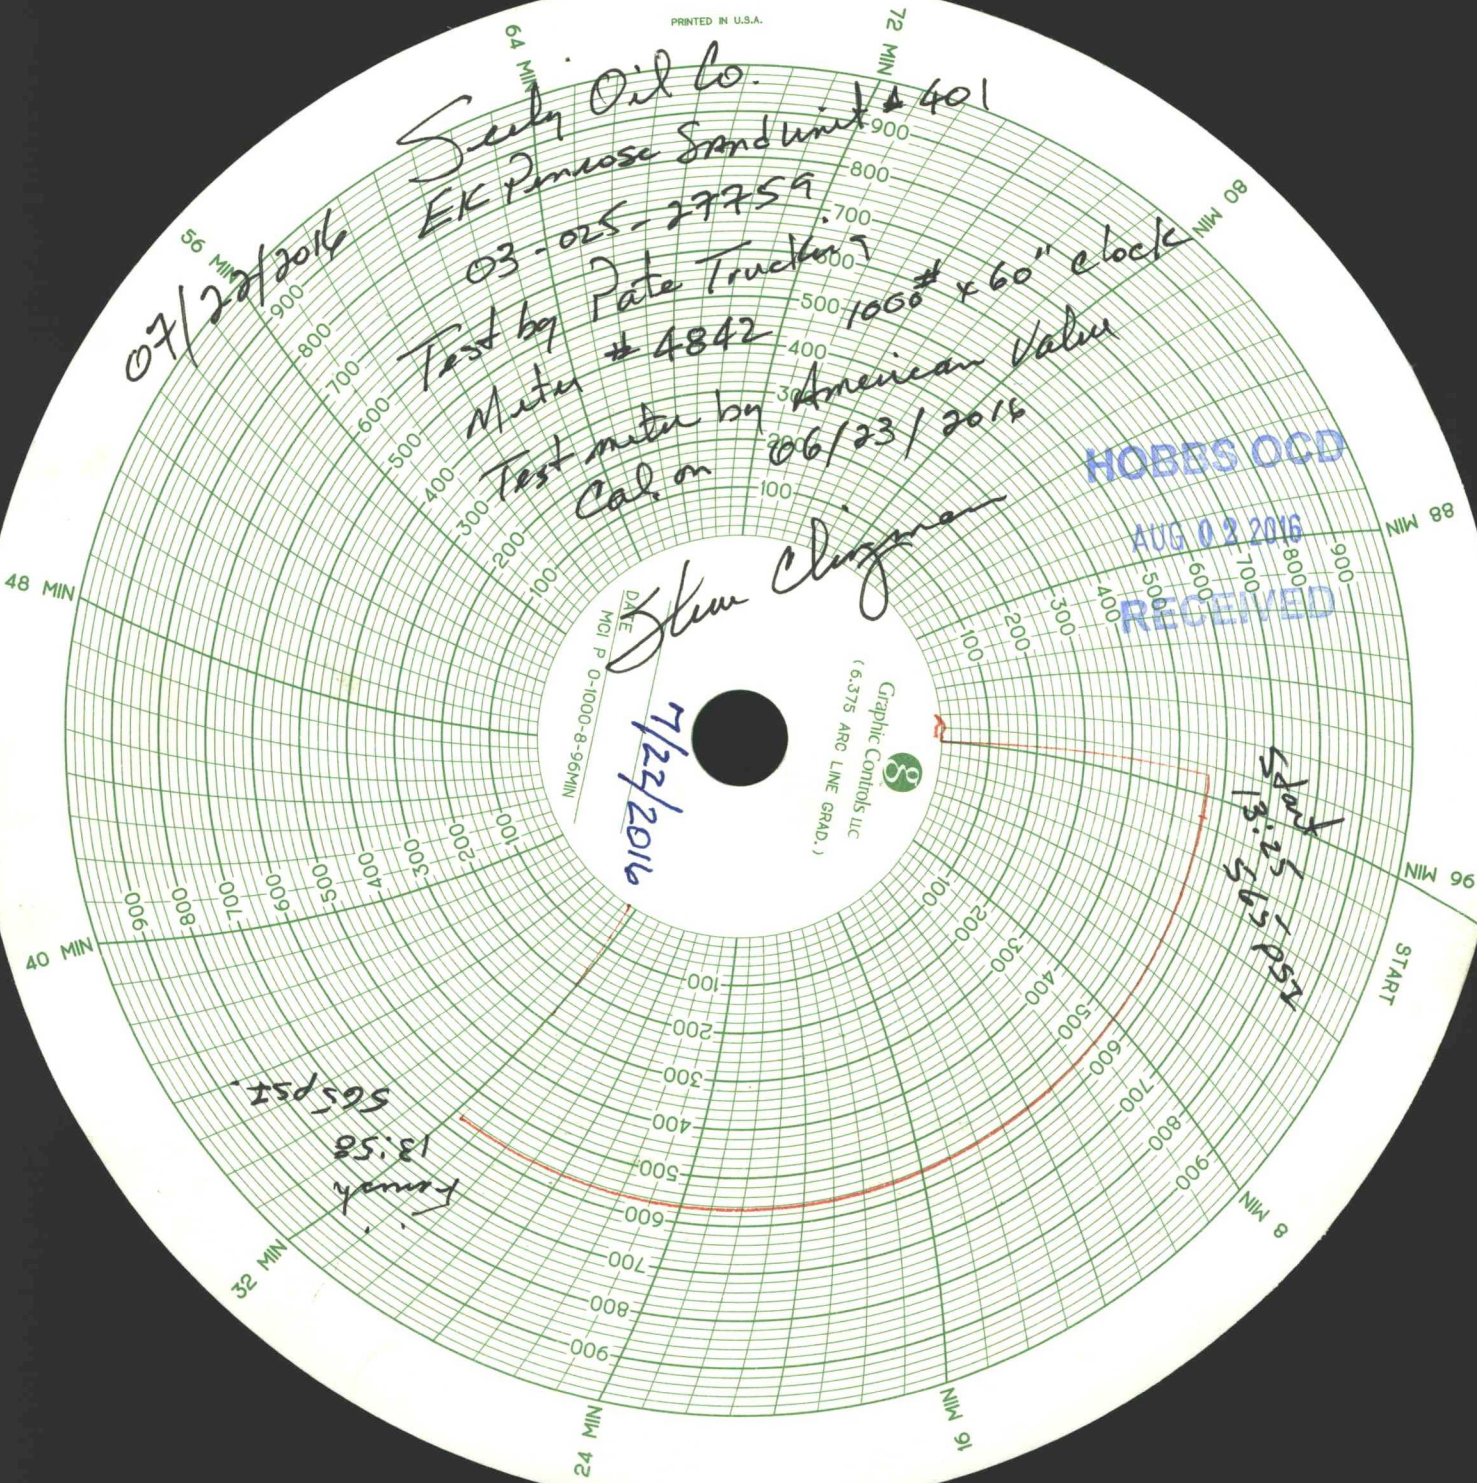 PRINTED IN U.S.A.
Seely Oil Co.
EK Penrose Sand Unit # 401
03-025-27759
Test by Pate Trucking
Meter # 4842 1000# x 60" clock
Test meter by American Valve
Cal. on 06/23/2016
07/22/2016
HOBBS OCD
AUG 02 2016
RECEIVED
DATE
7/22/2016
MCI P 0-1000-8-96MIN
g
Graphic Controls LLC
(6.375 ARC LINE GRAD.)
Start
13:25 - 
565 PSI
Finish
13:58
565 PSI.
START
8 MIN
16 MIN
24 MIN
32 MIN
40 MIN
48 MIN
56 MIN
64 MIN
72 MIN
80 MIN
88 MIN
96 MIN
100 200 300 400 500 600 700 800 900
100 200 300 400 500 600 700 800 900
100 200 300 400 500 600 700 800 900
100 200 300 400 500 600 700 800 900
100 200 300 400 500 600 700 800 900
100 200 300 400 500 600 700 800 900